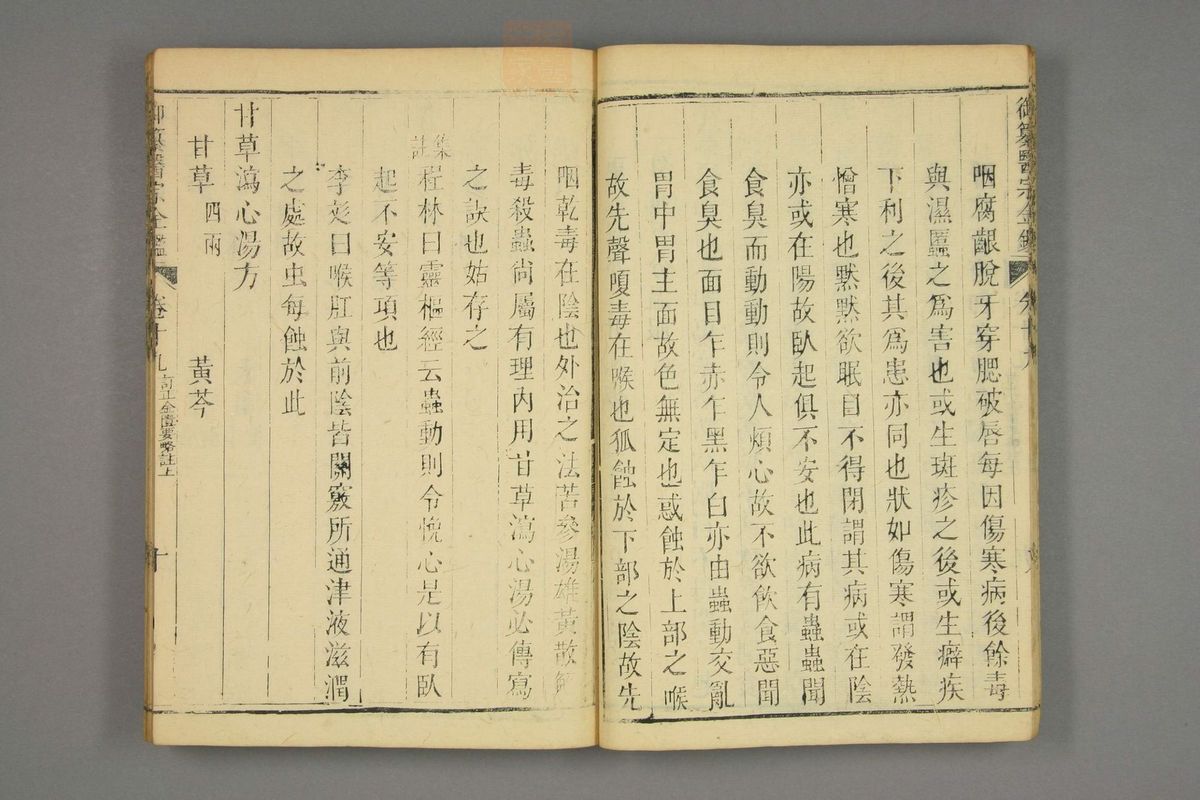 御纂醫宗金鑑
卷十九
咽腐齦脫牙穿腮破唇每因傷寒病後餘毒
與濕䘌之為害也或生斑疹之後或生癖疾
下利之後其為患亦同也狀如傷寒謂發熱
憎寒也默默欲眠目不得閉謂其病或在陰
亦或在陽故臥起俱不安也此病有蟲蟲聞
食臭而動動則令人煩心故不欲飲食惡聞
食臭也面目乍赤乍黑乍白亦由蟲動交亂
胃中胃主面故色無定也惑蝕於上部之喉
故先聲嗄毒在喉也狐蝕於下部之陰故先
咽乾毒在陰也外治之法苦參湯雄黃散解
毒殺蟲尙屬有理內用甘草瀉心湯必傳寫
之誤也姑存之
集註程林曰靈樞經云蟲動則令悗心是以有臥
起不安等項也
李彣曰喉肛與前陰皆關竅所通津液滋潤
之處故虫每蝕於此
甘草瀉心湯方
甘草四兩 黃芩
御纂醫宗金鑑 卷十九 訂正金匱要略註 十